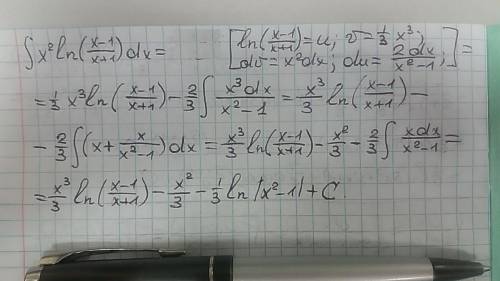 ∫x²ln((x-1)/(x+1))dx= [ln((x-1)/(x+1))=u; v=1/3 x³; dv=x²dx; du=2dx/(x²-1);]=
=1/3 x³ln((x-1)/(x+1))-2/3∫x³dx/(x²-1)=x³/3 ln((x-1)/(x+1))-
-2/3∫(x+x/(x²-1))dx=x³/3 ln((x-1)/(x+1))-x²/3-2/3∫xdx/(x²-1)=
=x³/3 ln((x-1)/(x+1))-x²/3-1/3 ln|x²-1|+C.